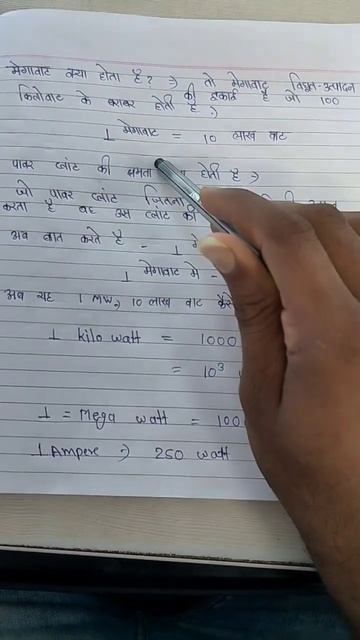 मेगावाट क्या होता है? => तो मेगावाट विद्युत-उत्पादन
की इकाई है जो 100
किलोवाट के बराबर होती है :)
1 मेगावाट = 10 लाख वाट
पावर प्लांट की क्षमता होती है =>
जो पावर प्लांट जितना
करता है वह उस प्लांट की
अब बात करते है - 1
1 मेगावाट मे -
अब यह 1 MW, 10 लाख वाट कैसे
1 kilo watt = 1000
= 10³
1 = Mega watt = 100
1 Ampere :) 250 watt